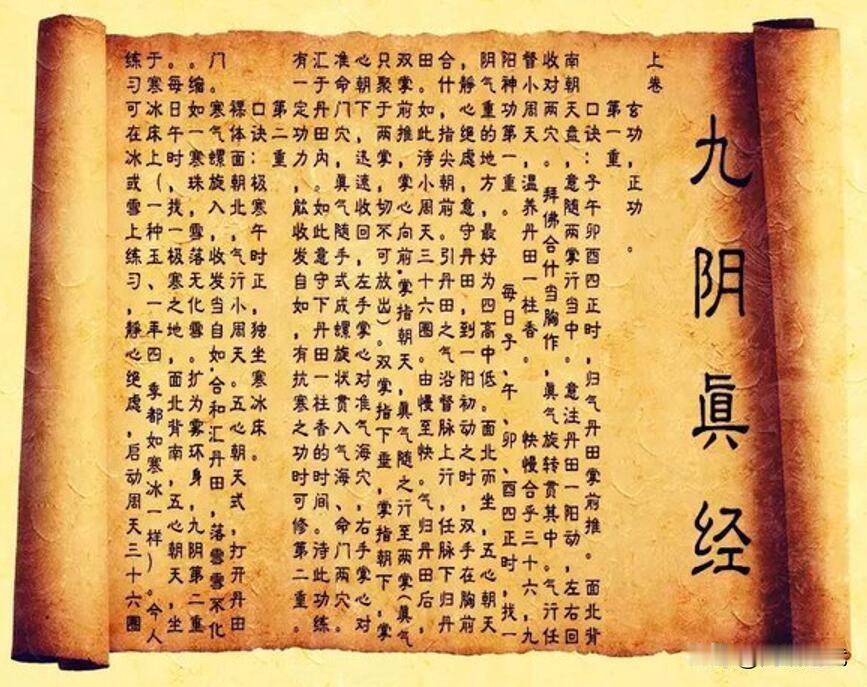 九阴眞经
上卷
玄功，正功。
第一重
口诀：子午卯酉四正时，归气丹田掌前推。 面北背
南朝天盘，意随两掌行当中。 意注丹田一阳动，左右回
收对两穴。 拜佛合什当胸作，眞气旋转贯其中。气行任
督小周天，温养丹田一柱香。 快慢合乎三十六，九
阳神功第一重。 每日子、午、卯、酉四正时，找一
阴气重的地方，最好为四高中低。面北而坐，五心朝天
，静心绝虑，意守丹田，到一阳初动之时，双手在胸前
合什，指尖朝前。引丹田之气沿督脉上行，任脉下归丹
田。如此待小周天三十六圈。由慢至快。气归丹田后，
双掌前推，掌心向前，掌指朝天，眞气随之行至两掌（眞气
只聚于两掌，切不可放出）。双掌指下垂，掌指朝下，掌
心朝下，迅速收回，左手掌心对准气海穴，右手掌心对
准命门穴，眞气随手式成螺旋状贯入气海、命门两穴。
汇于丹田内。如此意守下丹田一柱香的时间。待此功练
有一定功力，能收发自如，有抗寒之功时可修第二重。
第二重
口诀：极寒午时正，独坐寒冰床。
裸体面朝北，气行小周天。五心朝天式，打开丹田
门。 寒气螺旋入，收发当自如，合和汇丹田，落雪雪不化
。缩如一寒珠，雪落无化雪。扩为雾环身，九阴第二重
。每日午时，找一极寒之地，面北背南，五心朝天，坐
于寒冰床上（一种玉、一年四 季都如寒冰一样）。今人
练习可在冰或雪上练习，静心绝虑，启动周天三十六圈